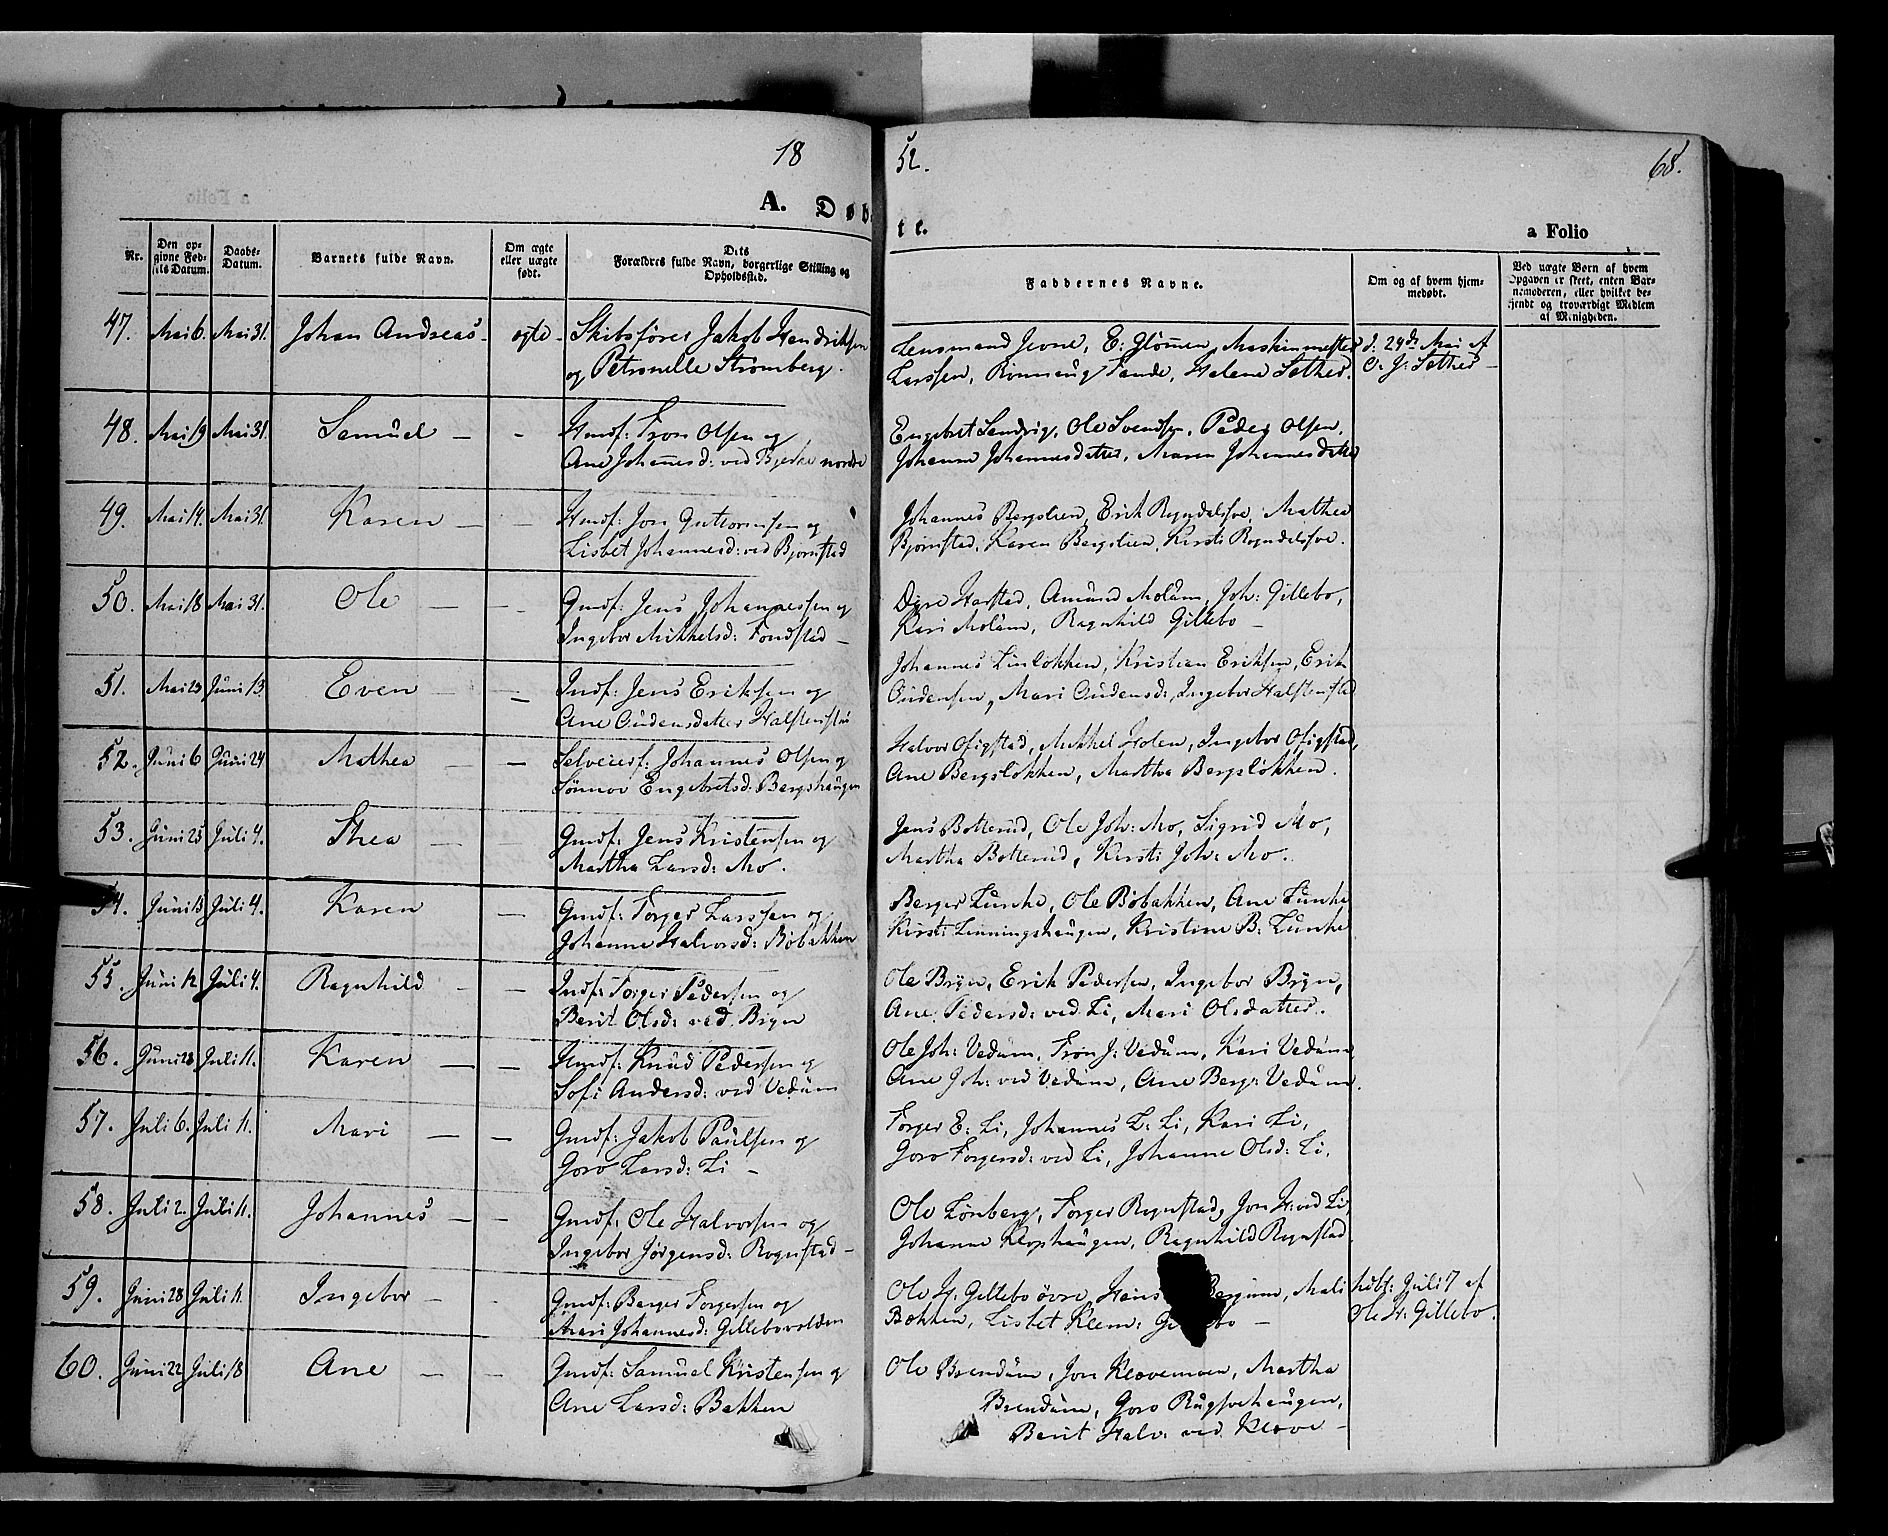 18 52. 68.
A. Døbte.
a Folio
Nr. | Den opgivne Fødsels Datum. | Daabs-Datum. | Barnets fulde Navn. | Om ægte eller uægte født. | Dets Forældres fulde Navn, borgerlige Stilling og Opholdssted. | Faddernes Navne. | Om og af hvem hjemmedøbt. | Ved uægte Børn af hvem Opgaven er skeet, enten Barnemoderen, eller hvilket bekjendt og troværdigt Medlem af Menigheden.
47. Mai 6. Mai 31. Johan Andreas. ægte - Skibsfører Jakob Hendriksen
og Petronelle Strømberg.
Lensmand Jevne, E: Glømen, Maskinmester
Larssen, Rønnaug Tande, Helene Sether.
d: 29de Mai af
O. J: Sether -
48. Mai 19 Mai 31. Samuel - - Hmdf: Tron Olsen og
Ane Johannesd: ved Bjerke nordre
Engebret Sandvig, Ole Svendsen, Peder Olsen,
Johanne Johannesdatter, Maren Johannesdatter
49. Mai 14. Mai 31. Karen - - Hmdf: Jon Guttormsen og
Lisbet Johannesd: ved Bjørnstad
Johannes Bergslien, Erik Rogndalsve, Mathea
Bjørnstad, Karen Bergslien, Kirsti Rogndalsve.
50. Mai 18 Mai 31. Ole - - Gmdf: Jens Johannessen og
Ingebor Mikkelsd: Fondstad -
Dyre Harstad, Amund Molum, Joh: Gillebo,
Kari Molum, Ragnhild Gillebo -
51. Mai 23 Juni 13. Even - - Indf: Jens Eriksen og
Ane Audensdatter Halstenstad
Johannes Linløkken, Kristian Eriksen, Erik
Audensen, Mari Audensd:, Ingebor Halstenstad
52. Juni 6 Juni 24 Mathea - - Selveierf: Johannes Olsen og
Sønnov Engebretsd: Bergshaugen
Halvor Ofigstad, Mikkel Holen, Ingebor Ofigstad,
Ane Bergsløkken, Martha Bergsløkken.
53. Juni 25 Juli 4. Thea - Gmdf: Jens Kristensen og
Martha Larsd: Mo.
Jens Botterud, Ole Joh: Mo, Sigrid Mo,
Martha Botterud, Kirsti Joh: Mo.
54. Juni 13 Juli 4. Karen - Gmdf: Torger Larssen og
Johanne Halvorsd: Bøbakken
Berger Lunke, Ole Bøbakken, Ane Lunke
Kirsti Linningshaugen, Kristine B: Lunke
55. Juni 12 Juli 4. Ragnhild - - Indf: Torger Pedersen og
Berit Olsd: ved Bryn
Ole Bryn, Erik Pedersen, Ingebor Bryn,
Ane Pedersd: ved Li, Mari Olsdatter.
56. Juni 23 Juli 11. Karen - - Hmdf: Knud Pedersen og
Sofi Andersd: ved Vedum
Ole Joh: Vedum, Tron J: Vedum, Kari Vedum,
Ane Joh: ved Vedum, Ane Berg: Vedum.
57. Juli 6. Juli 11. Mari - - Gmdf: Jakob Paulsen og
Goro Larsd: Li -
Torger E: Li, Johannes L: Li, Kari Li,
Goro Torgersd: ved Li, Johanne Olsd: Li,
58. Juli 2. Juli 11. Johannes - - Gmdf: Ole Halvorsen og
Ingebor Jørgensd: Rognstad -
Ole Lønberg, Torger Rognstad, Jon H: ved Li,
Johanne Klophaugen, Ragnhild Rognstad.
59. Juni 28 Juli 11. Ingebor - - Gmdf: Berger Torgersen og
Mari Johannesd: Gillebovolden
Ole H: Gillebo øvre, Hans Bergum, Mali
Bakken, Lisbet Klem: G bo -
hdbt: Juli 7 af
Ole H: Gillebo.
60. Juni 22 Juli 18 Ane - - Gmdf: Samuel Kristensen og
Ane Larsd: Bakken
Ole Brendum, Jon Klovemoen, Martha
Brendum, Goro Rugsvehaugen,
Berit Halv: ved Klove -